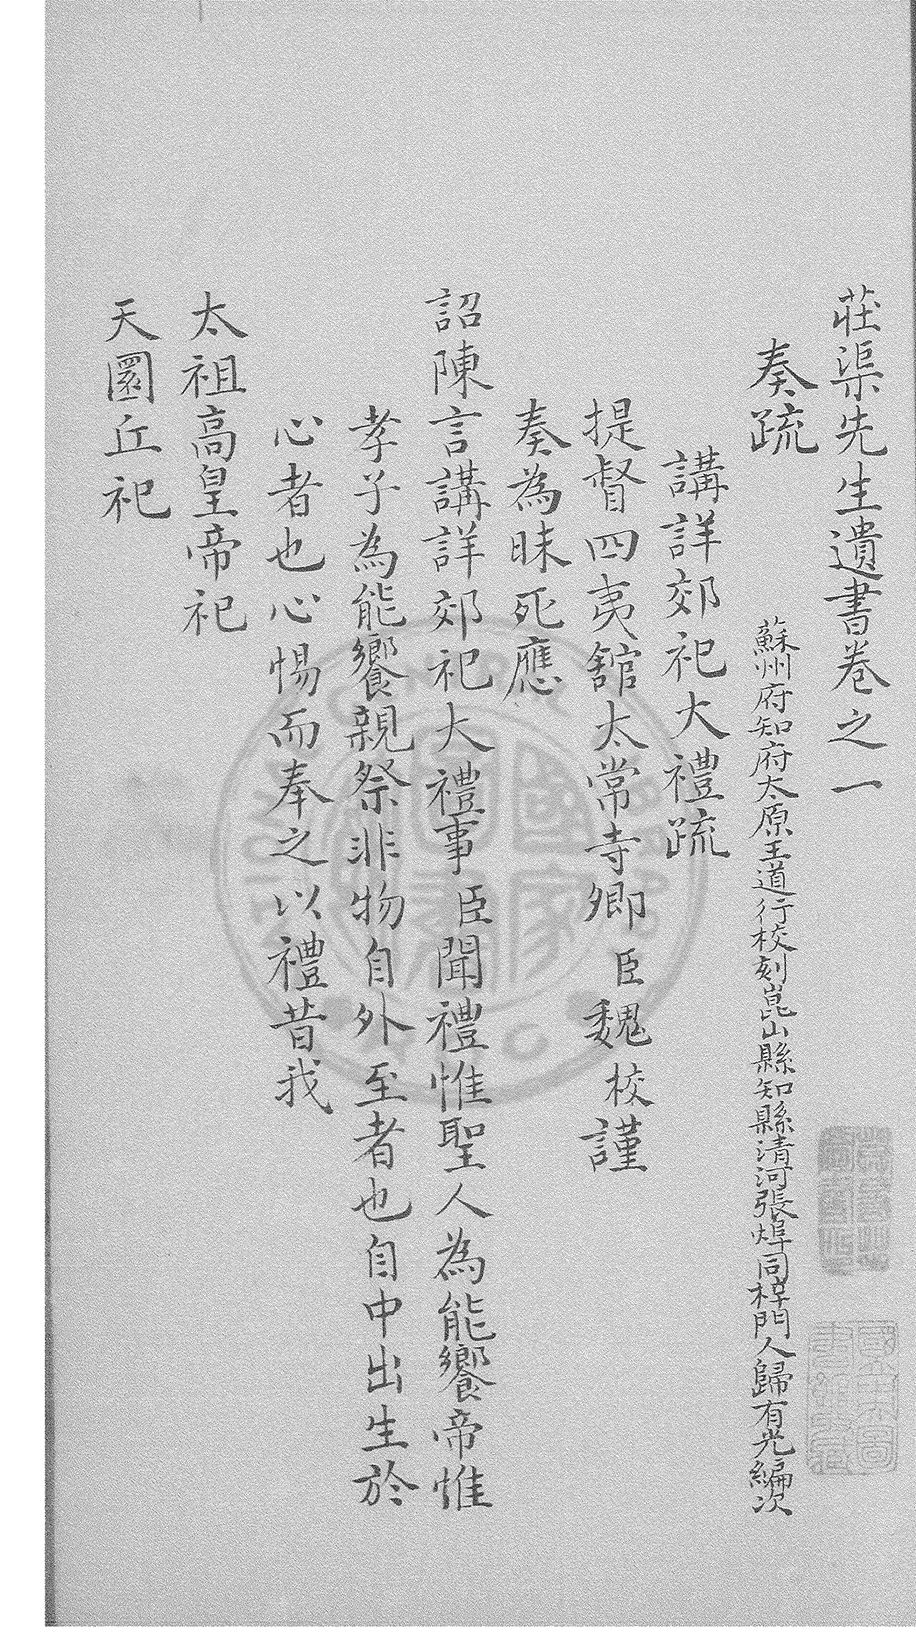 莊渠先生遺書卷之一
奏疏 蘇州府知府太原王道行校刻崑山縣知縣清河張焯同梓門人歸有光編次
講詳郊祀大禮疏
提督四夷舘太常寺卿臣魏校謹
奏為昧死應
詔陳言講詳郊祀大禮事臣聞禮惟聖人為能饗帝惟
孝子為能饗親祭非物自外至者也自中出生於
心者也心惕而奉之以禮昔我
太祖高皇帝祀
天圜丘祀
國家圖書